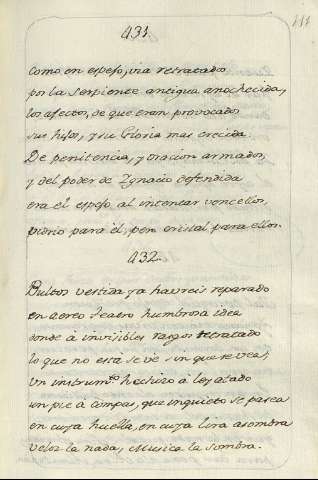 431.
111
Como en espejo, via retractado
por la serpiente antigua anochecida,
los afectos, de que eran provocados
sus hijos, y su Gloria mas crecida.
De penitencia, y oracion armados,
y del poder de Ygnacio defendida
era el espejo, al intentar vencellos,
vidrio para èl, pero cristal para ellos.
432.
Bultos vestida ya havreis reparado
en aereo teatro humbrosa idea
donde à invisibles rasgos retratado
lo que no està se vè sin que se vea;
Un instrumto. hechizo à los, atado
un pie à compas, que inquieto se pasea
en cuya huella, en cuya lira asombra
veloz la nada, Musica la sombra.